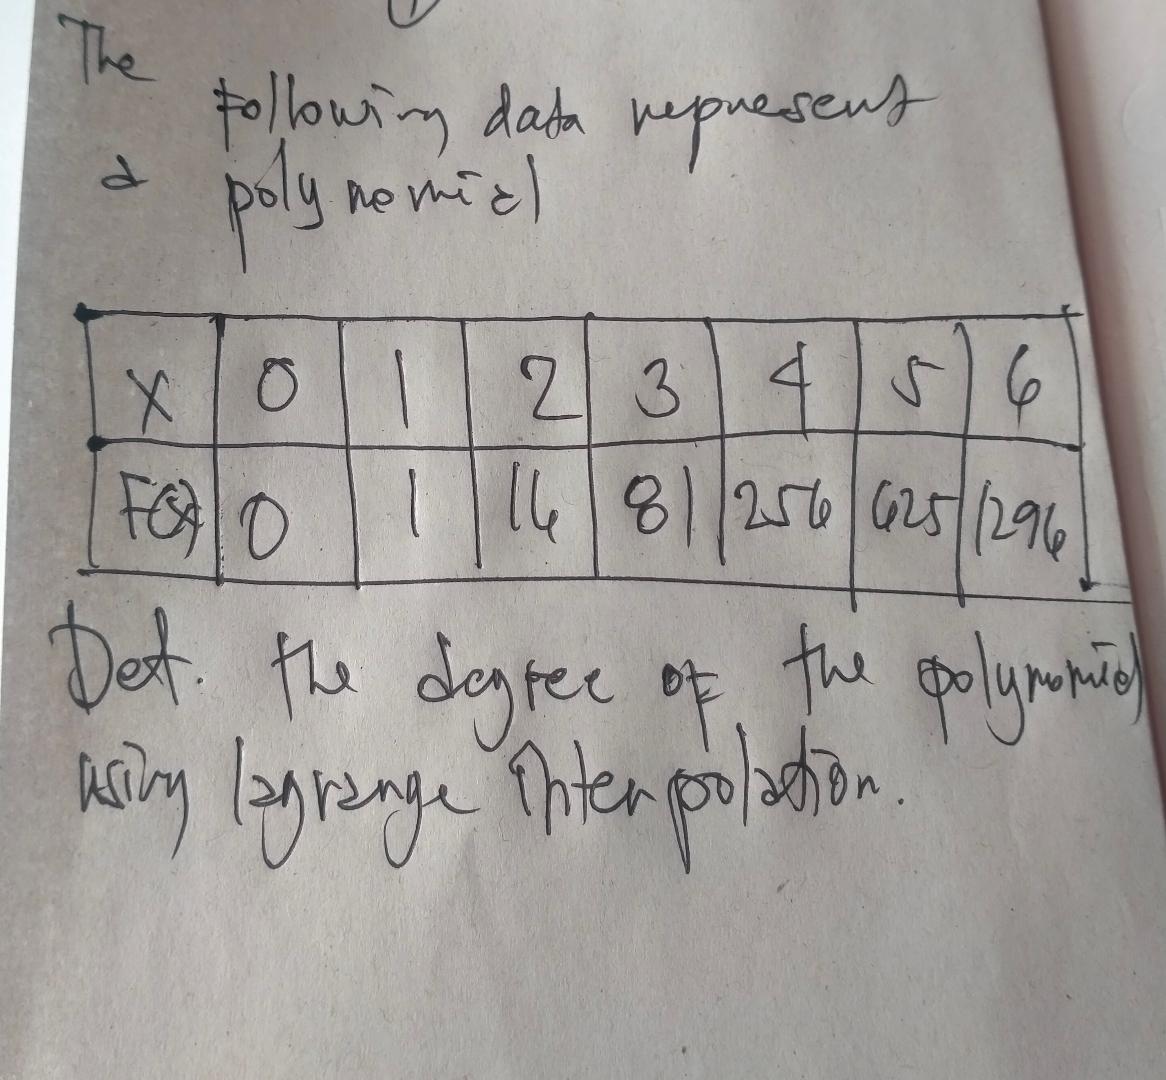 The
following data represent
a polynomial
X 0 1 2 3 4 5 6
F(x) 0 1 16 81 256 625 1296
Det. the degree of the polynomial
using lagrange interpolation.